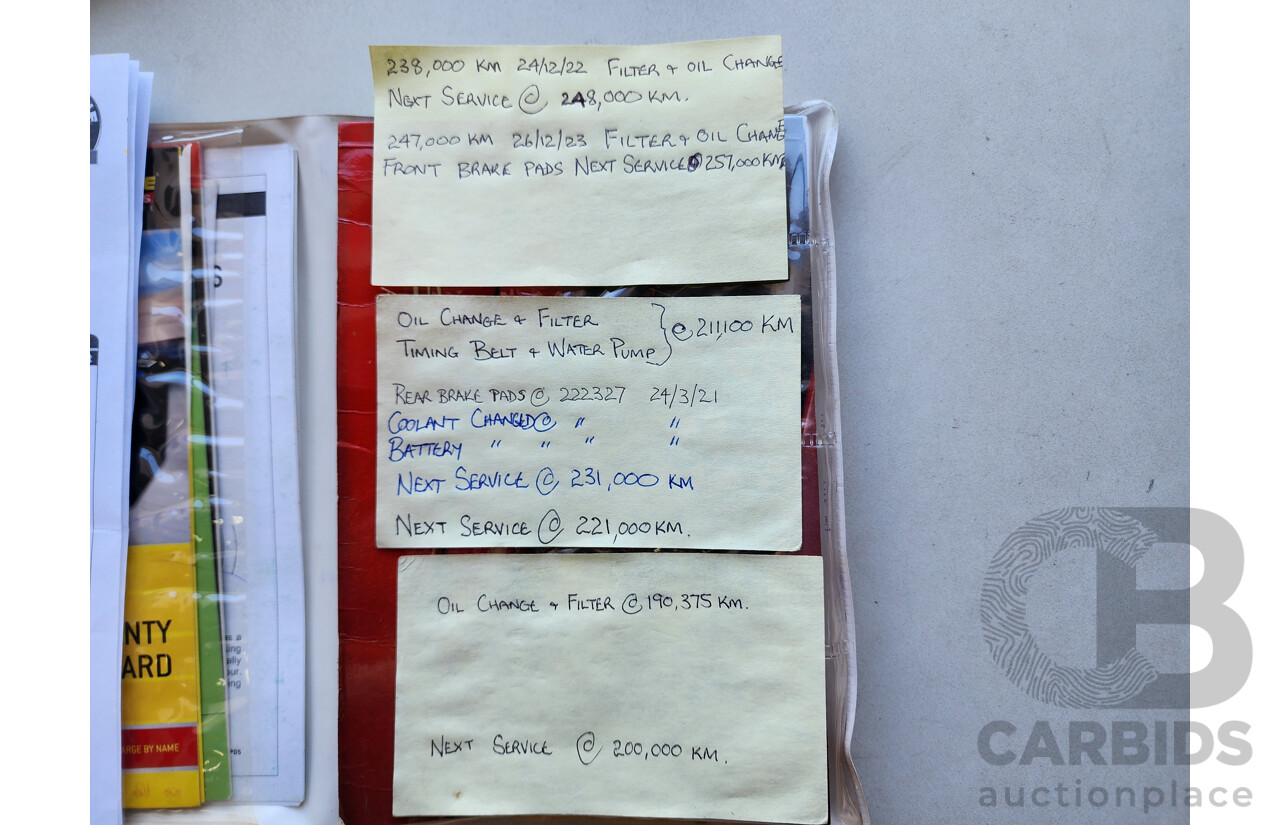 238,000 KM 24/12/22 FILTER & OIL CHANGE
NEXT SERVICE @ 248,000 KM.
247,000 KM 26/12/23 FILTER & OIL CHANE
FRONT BRAKE PADS NEXT SERVICE @ 257,000KM
OIL CHANGE & FILTER
TIMING BELT & WATER PUMP } @ 211,100 KM
REAR BRAKE PADS @ 222327 24/3/21
COOLANT CHANGED @ " "
BATTERY " " " "
NEXT SERVICE @ 231,000 KM
NEXT SERVICE @ 221,000KM.
OIL CHANGE & FILTER @ 190,375 KM.
NEXT SERVICE @ 200,000 KM.
NTY
ARD
ARGE BY NAME
S
CB
CARBIDS
auctionplace